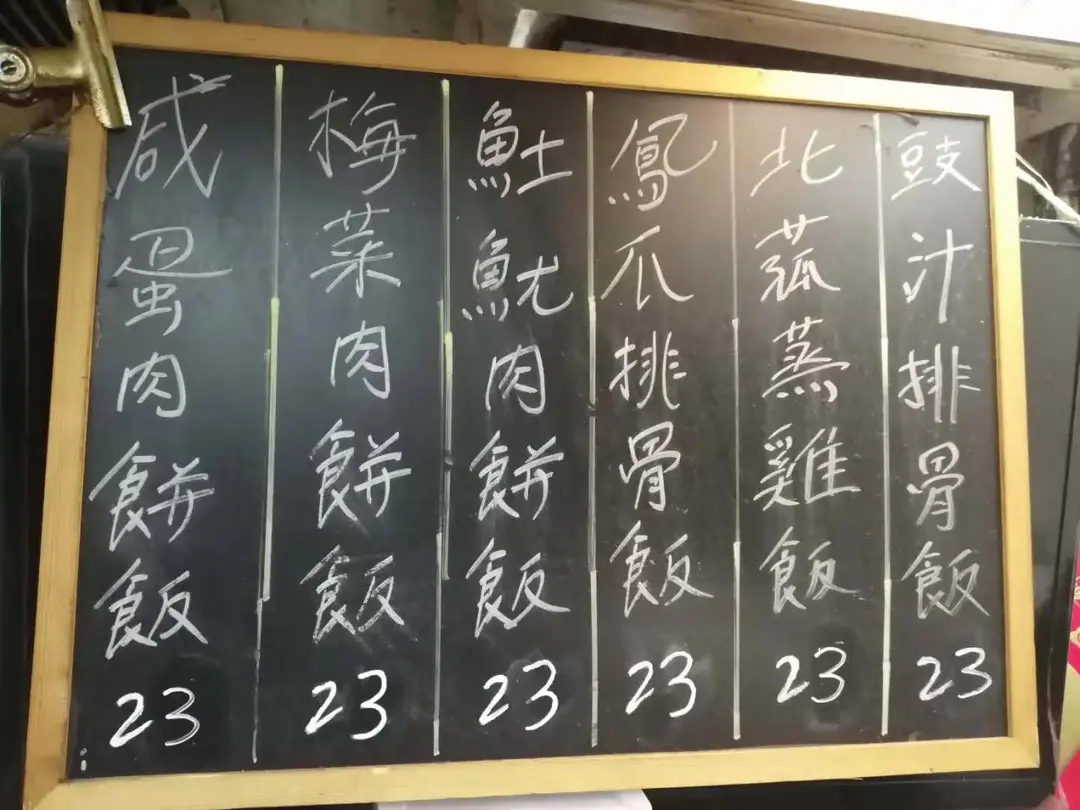 豉汁排骨飯 23
北菰蒸雞飯 23
鳳爪排骨飯 23
魷魷肉餅飯 23
梅菜肉餅飯 23
咸蛋肉餅飯 23